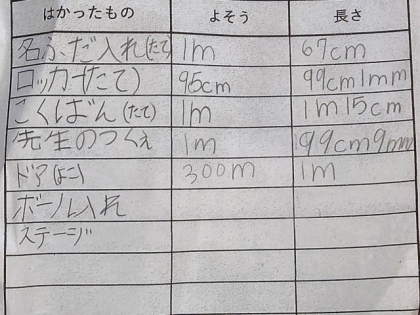 はかったもの よそう 長さ
名ふだ入れ(たて) 1m 67cm
ロッカー(たて) 95cm 99cm1mm
こくばん(たて) 1m 1m15cm
先生のつくえ 1m 199cm9mm
ドア(よこ) 300m 1m
ボール入れ
ステージ